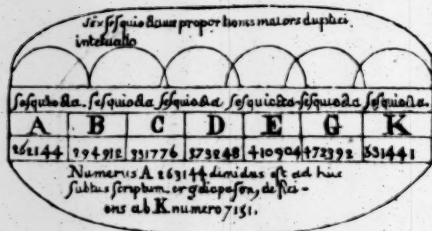 Sex sesquioctauae proportiones maiors duplici
interuallo
sesquiocta. sesquiocta sesquiocta sesquiocta sesquiocta sesquiocta.
A B C D E G K
262144 294912 331776 373248 410904 472392 531441
Numerus A 263144 dimidus est ad hic
subtus scriptum. ergo diapason, defici-
ens ab K numero 7151.